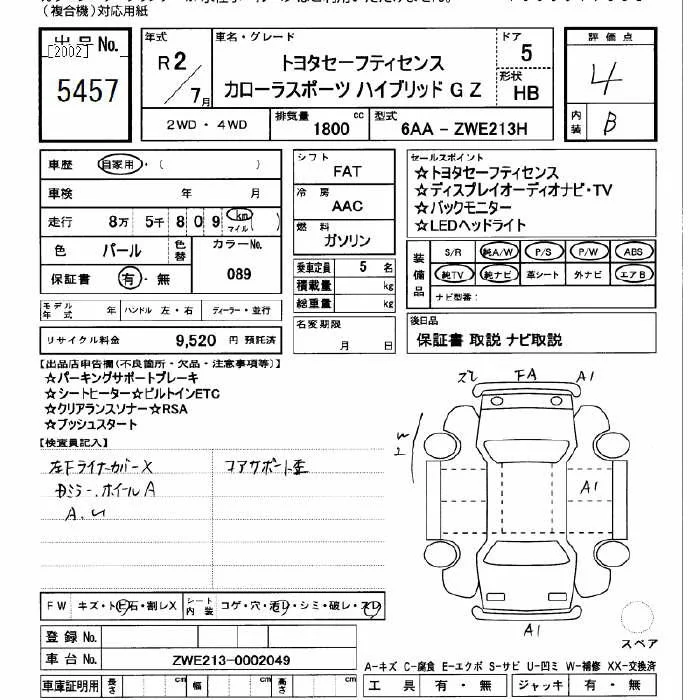 (複合機)対応用紙
出品No.
[2002]
5457
年式
R2/7月
車名・グレード
トヨタセーフティセンス
カローラスポーツ ハイブリッド G Z
ドア
5
形状
HB
評価点
4
内装
B
2WD・4WD
排気量 1800 cc
型式 6AA - ZWE213H
車歴 自家用・( )
車検 年 月
走行 8万 5千 8 0 9 km マイル
色 パール
色替
カラーNo.
089
保証書 有・無
モデル年式 年
ハンドル 左・右
ディーラー・並行
リサイクル料金 9,520 円 預託済
シフト
FAT
冷房
AAC
燃料
ガソリン
乗車定員 5 名
積載量 kg
総重量 kg
名変期限
月 日
セールスポイント
☆トヨタセーフティセンス
☆ディスプレイオーディオナビ・TV
☆バックモニター
☆LEDヘッドライト
装備品
S/R 純A/W P/S P/W ABS
純TV 純ナビ 革シート 外ナビ エアB
ナビ型番:
後日品
保証書 取説 ナビ取説
【出品店申告欄(不良箇所・欠品・注意事項等)】
☆パーキングサポートブレーキ
☆シートヒーター☆ビルトインETC
☆クリアランスソナー☆RSA
☆プッシュスタート
【検査員記入】
左Fライナーカバー X
Dミラー.ホイールA
コアサポート歪
ズレ FA A1
A1
A1
FW キズ・ト 石・割レX
シート内装 コゲ・穴・汚レ・シミ・破レ・スレ
登録 No.
車台 No. ZWE213-0002049
車庫証明用
長さ cm
幅 cm
高さ cm
スペア
A-キズ C-腐食 E-エクボ S-サビ U-凹ミ W-補修 XX-交換済
工具 有・無
ジャッキ 有・無